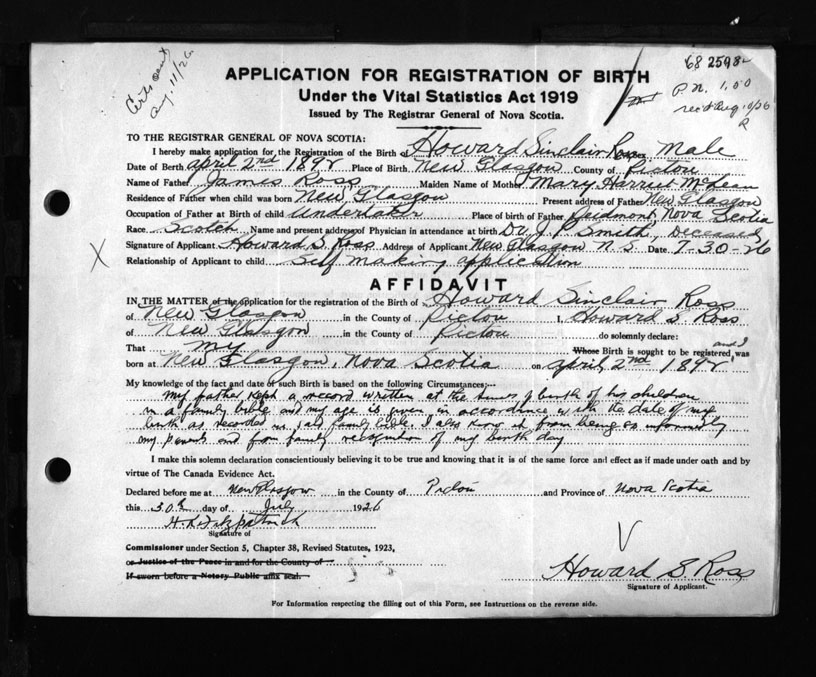 Aug. 11/26.
68 2598
P.N. 1.00
rec'd Aug. 10/26
R
APPLICATION FOR REGISTRATION OF BIRTH
Under the Vital Statistics Act 1919
Issued by The Registrar General of Nova Scotia.
TO THE REGISTRAR GENERAL OF NOVA SCOTIA:
I hereby make application for the Registration of the Birth of Howard Sinclair Ross Male
Date of Birth April 2nd 1892 Place of Birth New Glasgow County of Pictou
Name of Father James Ross Maiden Name of Mother Mary Harriet McLean
Residence of Father when child was born New Glasgow Present address of Father New Glasgow
Occupation of Father at Birth of child Undertaker Place of birth of Father Nova Scotia
Race. Scotch Name and present address of Physician in attendance at birth Dr. J. Smith, Deceased
Signature of Applicant Howard S. Ross Address of Applicant New Glasgow N. S. Date 7-30-26
Relationship of Applicant to child Self making application
X
AFFIDAVIT
IN THE MATTER of the application for the registration of the Birth of Howard Sinclair Ross
of New Glasgow in the County of Pictou I, Howard S Ross
of New Glasgow in the County of Pictou do solemnly declare:
That my Whose Birth is sought to be registered and I was
born at New Glasgow, Nova Scotia on April 2nd 1892
My knowledge of the fact and date of such Birth is based on the following Circumstances:—
My father kept a record written at the times of birth of his children
in a family bible and my age is given in accordance with the date of my
birth as recorded in said family bible. I also know it from being so informed by
my parents and from family recognition of my birth day.
I make this solemn declaration conscientiously believing it to be true and knowing that it is of the same force and effect as if made under oath and by
virtue of The Canada Evidence Act.
Declared before me at New Glasgow in the County of Pictou and Province of Nova Scotia
this 30th day of July 1926
Fitzpatrick
Signature of
Commissioner under Section 5, Chapter 38, Revised Statutes, 1923,
or Justice of the Peace in and for the County of
If sworn before a Notary Public affix seal.
Howard S Ross
Signature of Applicant.
For Information respecting the filling out of this Form, see Instructions on the reverse side.